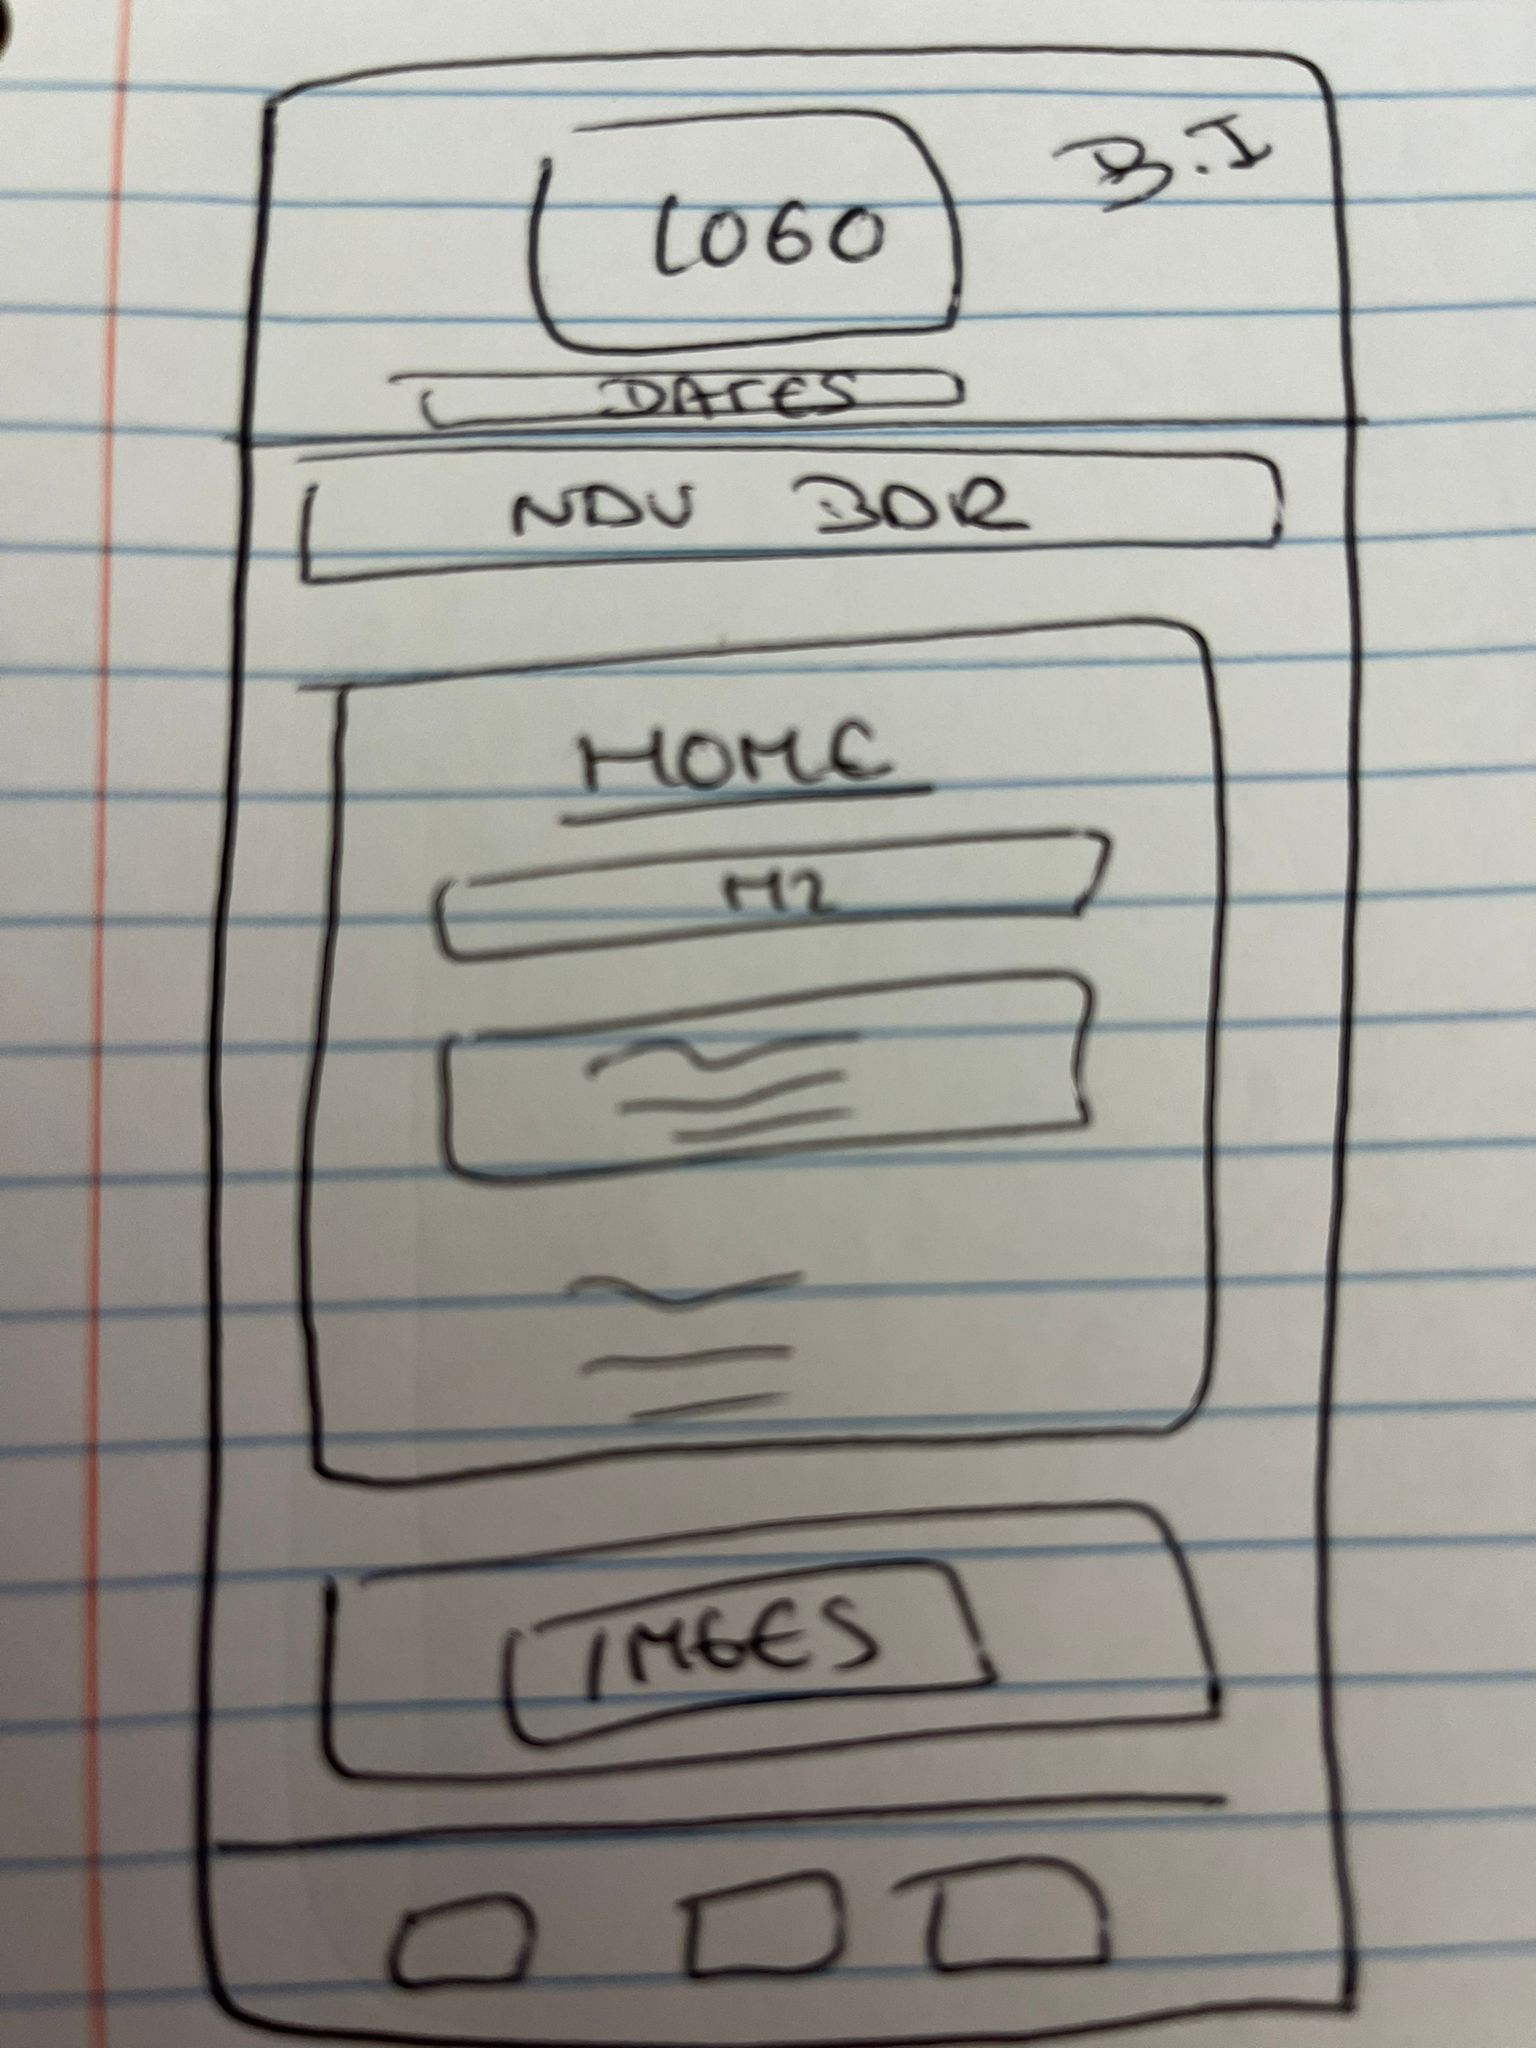 B.I
LOGO
DATES
NAV BAR
HOME
H2
IMGES